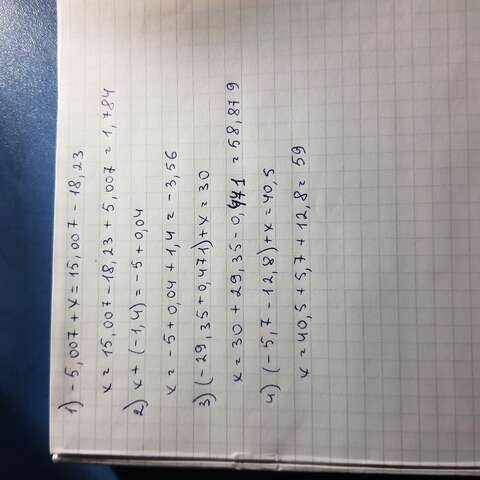 1) -5,007 + x = 15,007 - 18,23
x = 15,007 - 18,23 + 5,007 = 1,784
2) x + (-1,4) = -5 + 0,04
x = -5 + 0,04 + 1,4 = -3,56
3) (-29,35 + 0,471) + x = 30
x = 30 + 29,35 - 0,471 = 58,879
4) (-5,7 - 12,8) + x = 40,5
x = 40,5 + 5,7 + 12,8 = 59